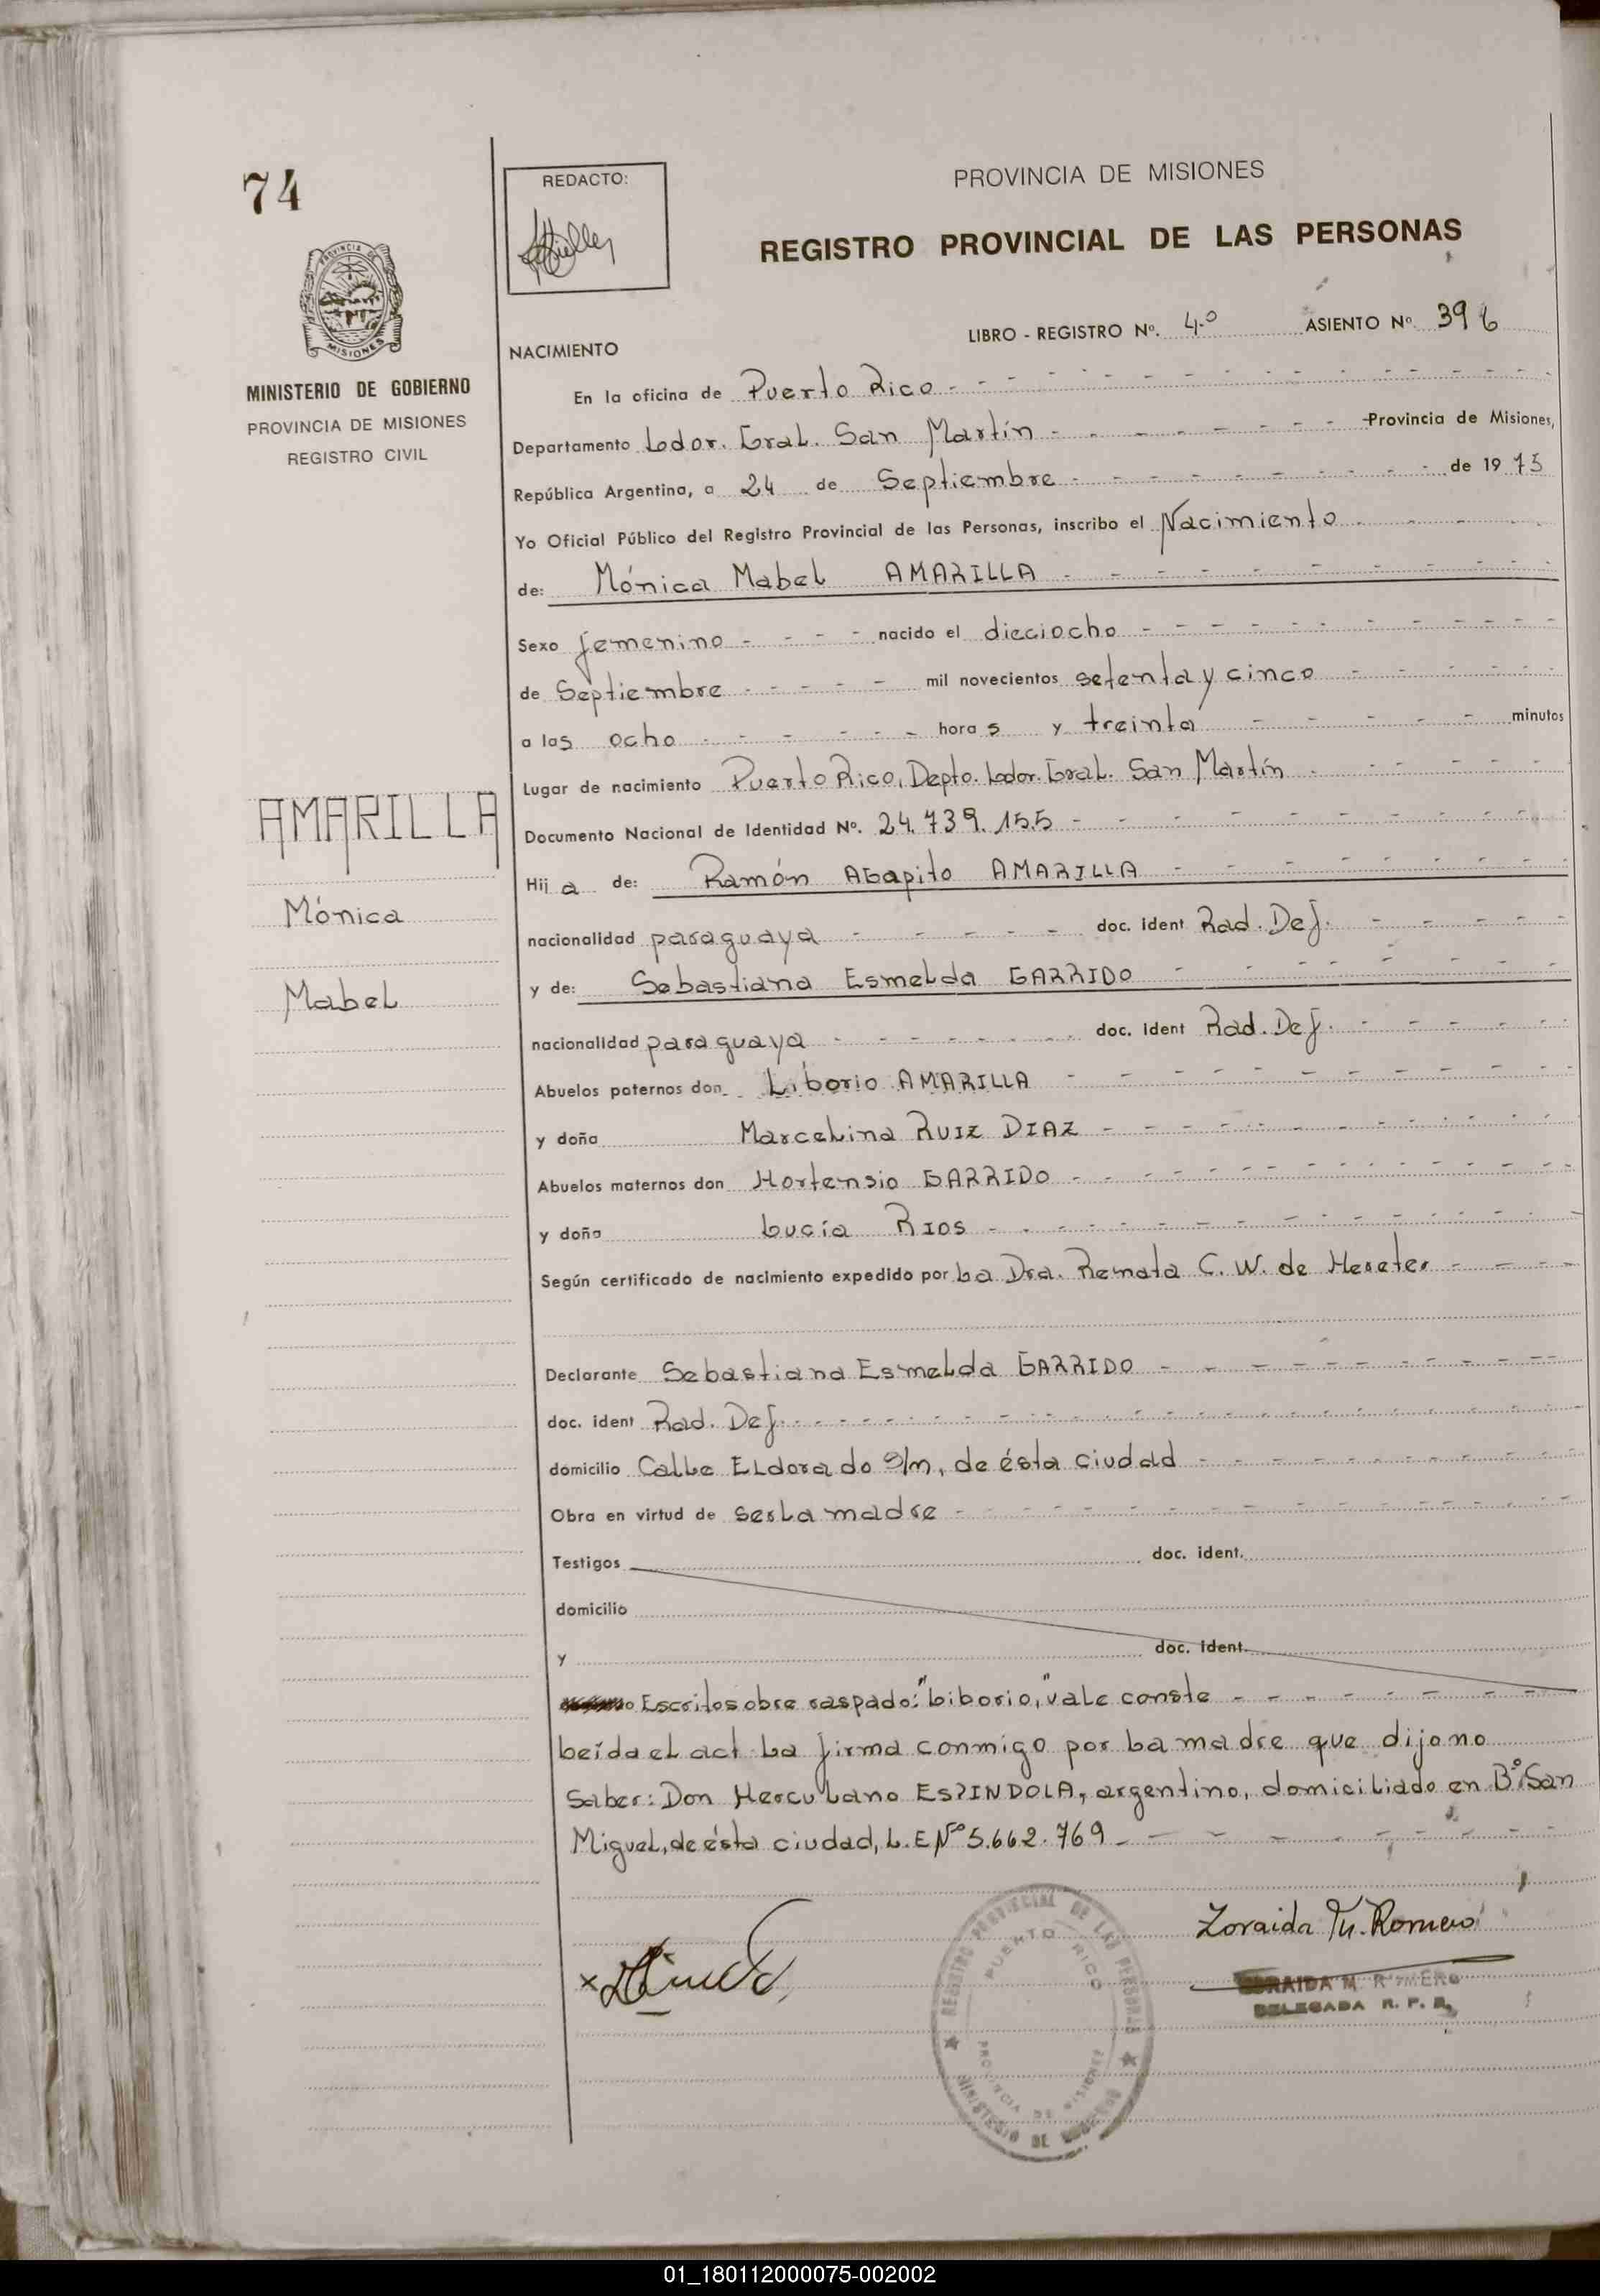 74
REDACTO:
PROVINCIA DE MISIONES
REGISTRO PROVINCIAL DE LAS PERSONAS
PROVINCIA DE
MISIONES
MINISTERIO DE GOBIERNO
PROVINCIA DE MISIONES
REGISTRO CIVIL
LIBRO - REGISTRO Nº. 4º ASIENTO Nº. 396
NACIMIENTO
En la oficina de Puerto Rico
Departamento Lodor. Gral. San Martín Provincia de Misiones,
República Argentina, a 24 de Septiembre de 1975
Yo Oficial Público del Registro Provincial de las Personas, inscribo el Nacimiento
de: Mónica Mabel AMARILLA
Sexo femenino nacido el dieciocho
de Septiembre mil novecientos setenta y cinco
a las ocho horas y treinta minutos
Lugar de nacimiento Puerto Rico, Depto. Lodor. Gral. San Martín
Documento Nacional de Identidad Nº. 24.739.155
Hija de: Ramón Agapito AMARILLA
nacionalidad paraguaya doc. ident Rad. Def.
y de: Sebastiana Esmelda GARRIDO
nacionalidad paraguaya doc. ident Rad. Def.
Abuelos paternos don Liborio AMARILLA
y doña Marcelina RUIZ DIAZ
Abuelos maternos don Hortensio GARRIDO
y doña Lucía RIOS
Según certificado de nacimiento expedido por La Dra. Renata C. W. de Hereter
Declarante Sebastiana Esmelda GARRIDO
doc. ident Rad. Def.
domicilio Calle Eldorado s/n, de ésta ciudad
Obra en virtud de ser la madre
Testigos doc. ident.
domicilio
y doc. ident.
Escrito sobre raspado: "Liborio," vale conste
Leída el act La firma conmigo por la madre que dijo no
Saber: Don Herculano ESPINDOLA, argentino, domiciliado en Bº San
Miguel, de ésta ciudad, L.E Nº 5.662.769
AMARILLA
Mónica
Mabel
REGISTRO PROVINCIAL DE LAS PERSONAS
PUERTO RICO
PROVINCIA DE MISIONES
MINISTERIO DE GOBIERNO
Zoraida M. Romero
ZORAIDA M. ROMERO
DELEGADA R. P. P.
01_180112000075-002002